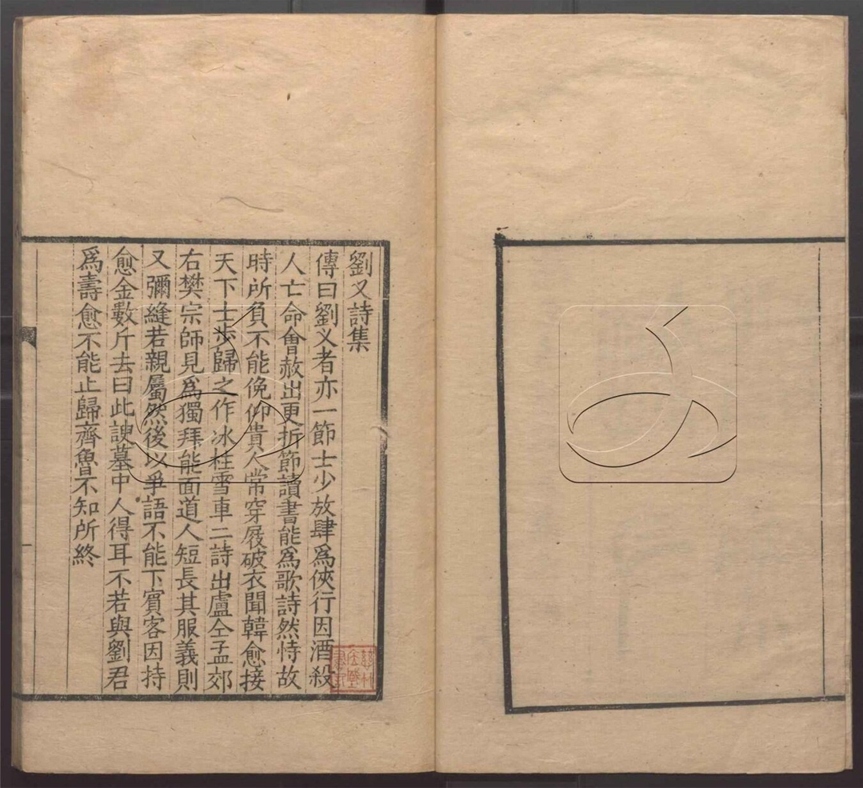 劉叉詩集
傳曰劉义者亦一節士少放肆爲俠行因酒殺
人亡命會赦出更折節讀書能爲歌詩然恃故
時所負不能俛仰貴人常穿屐破衣聞韓愈接
天下士步歸之作冰柱雪車二詩出盧仝孟郊
右樊宗師見爲獨拜能面道人短長其服義則
又彌縫若親屬然後以爭語不能下賓客因持
愈金數斤去曰此諛墓中人得耳不若與劉君
爲壽愈不能止歸齊魯不知所終